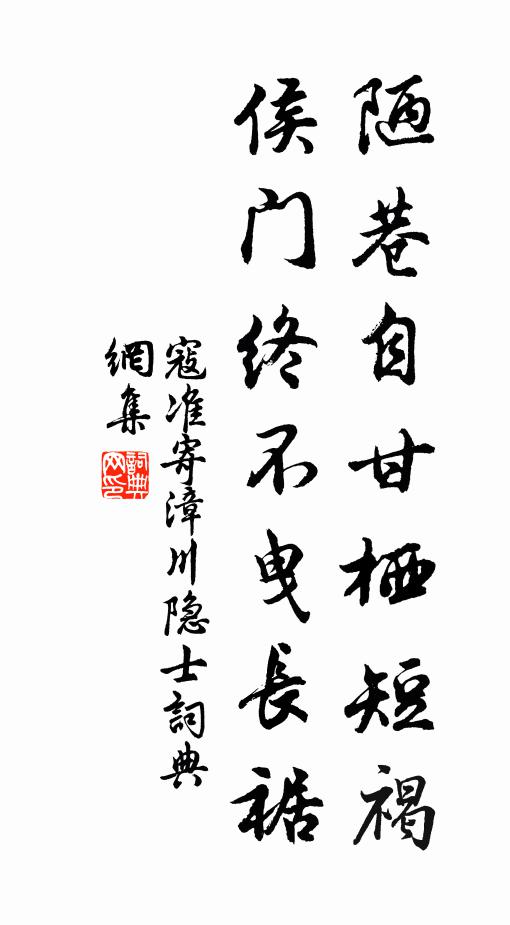 陋巷自甘栖短褐
侯门终不曳長裾
寇准寄漳川隐士詞典
網集
詞典网印